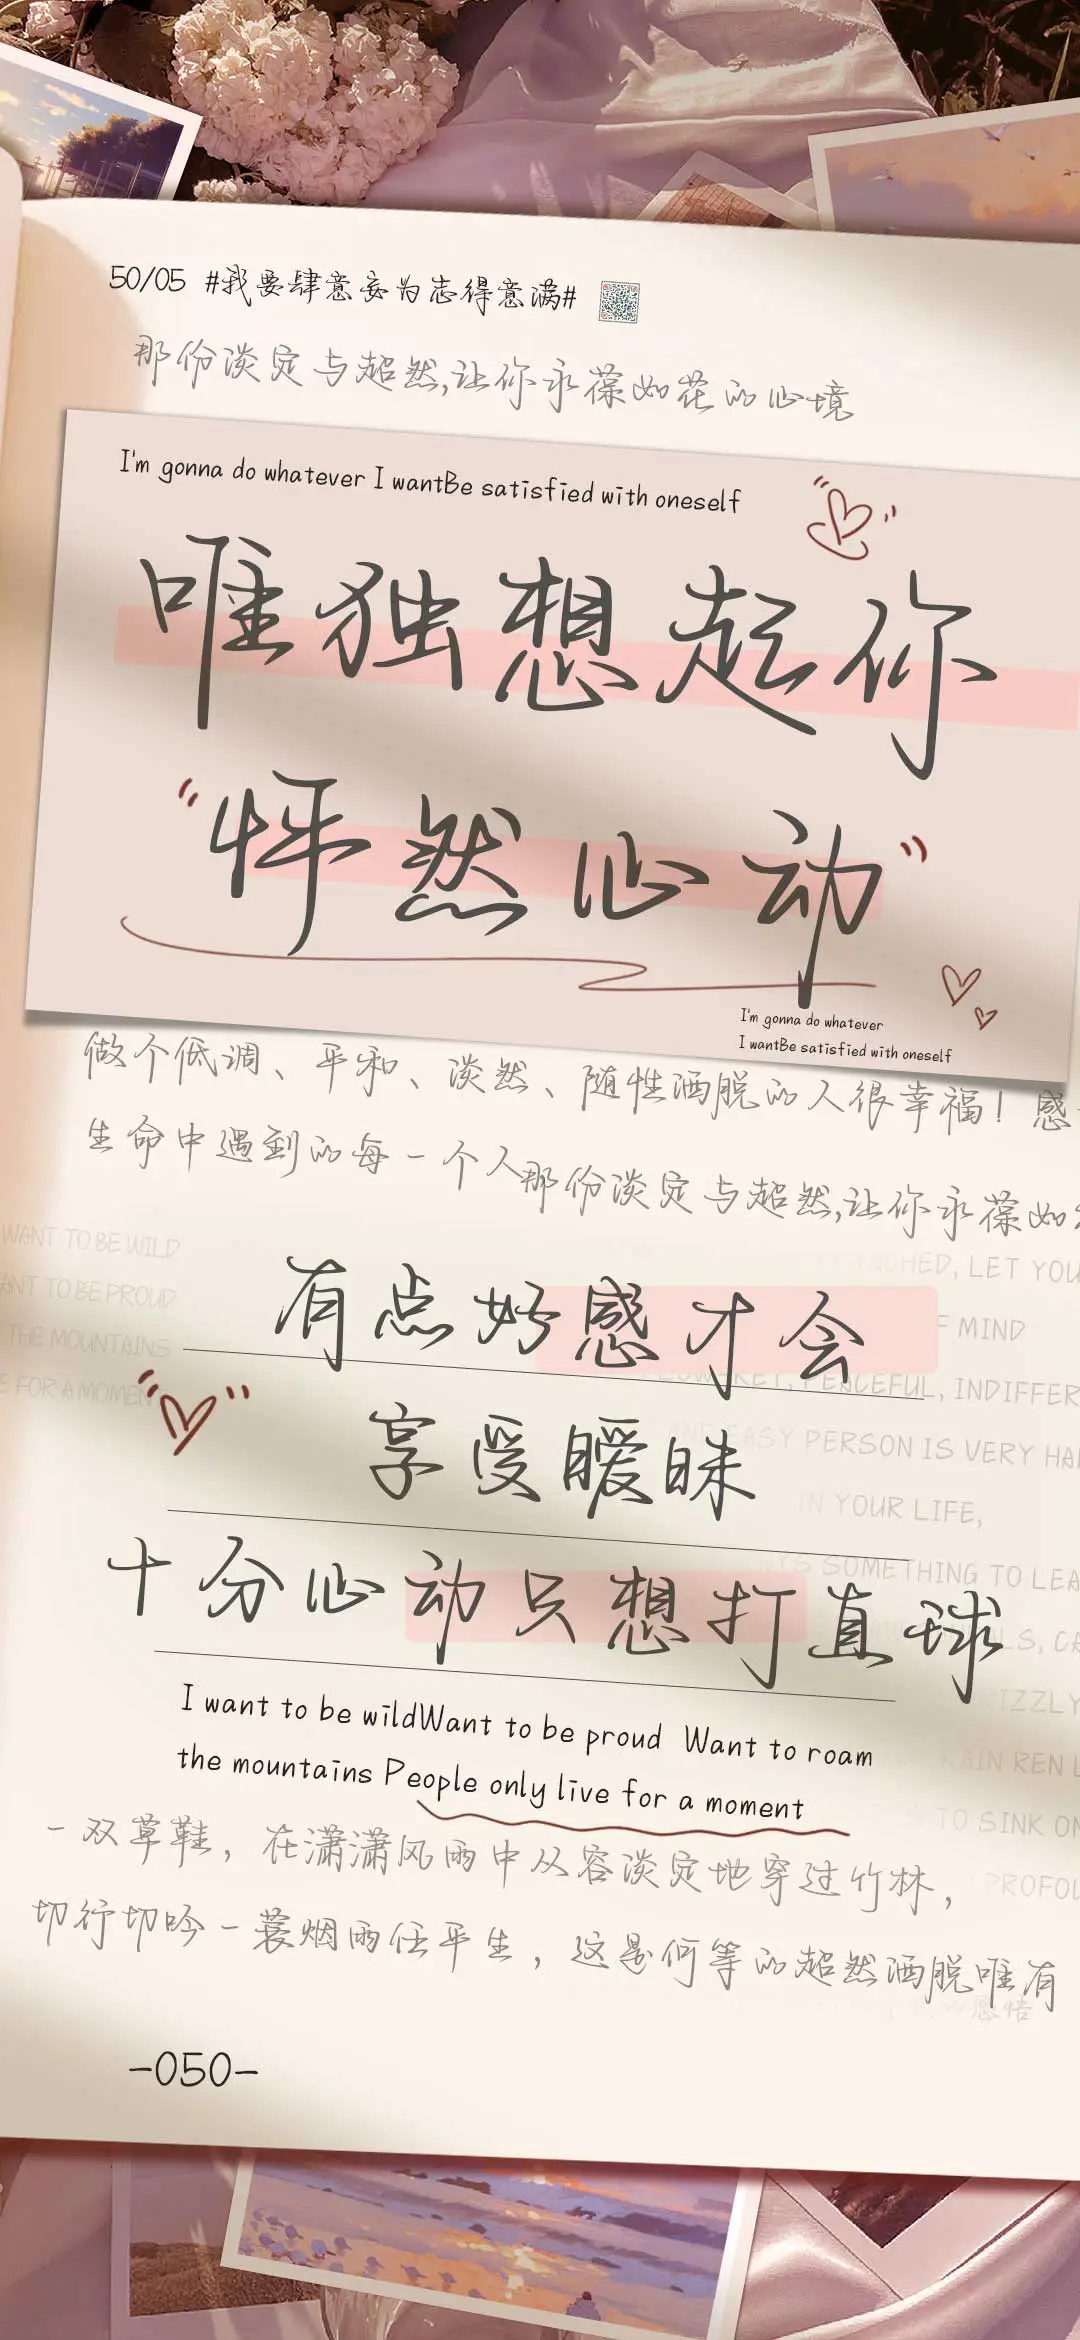 50/05 #我要肆意妄为志得意满#
那份淡定与超然,让你永葆如花的心境
I'm gonna do whatever I wantBe satisfied with oneself
唯独想起你
"怦然心动"
I'm gonna do whatever
I wantBe satisfied with oneself
做个低调、平和、淡然、随性洒脱的人很幸福！感
生命中遇到的每一个人那份淡定与超然,让你永葆如
WANT TO BE WILD
ANT TO BE PROUD
THE MOUNTAINS
E FOR A MOMEN
ACHED, LET YOU
F MIND
有点好感才会
PEACEFUL, INDIFFER
享受暧昧
EASY PERSON IS VERY HA
IN YOUR LIFE,
SOMETHING TO LEA
十分心动只想打直球
LS, CA
IZZLY
AIN REN L
TO SINK ON
PROFOU
I want to be wildWant to be proud Want to roam
the mountains People only live for a moment
一双草鞋，在潇潇风雨中从容淡定地穿过竹林，
切行切吟一蓑烟雨任平生，这是何等的超然洒脱唯有
感悟
-050-